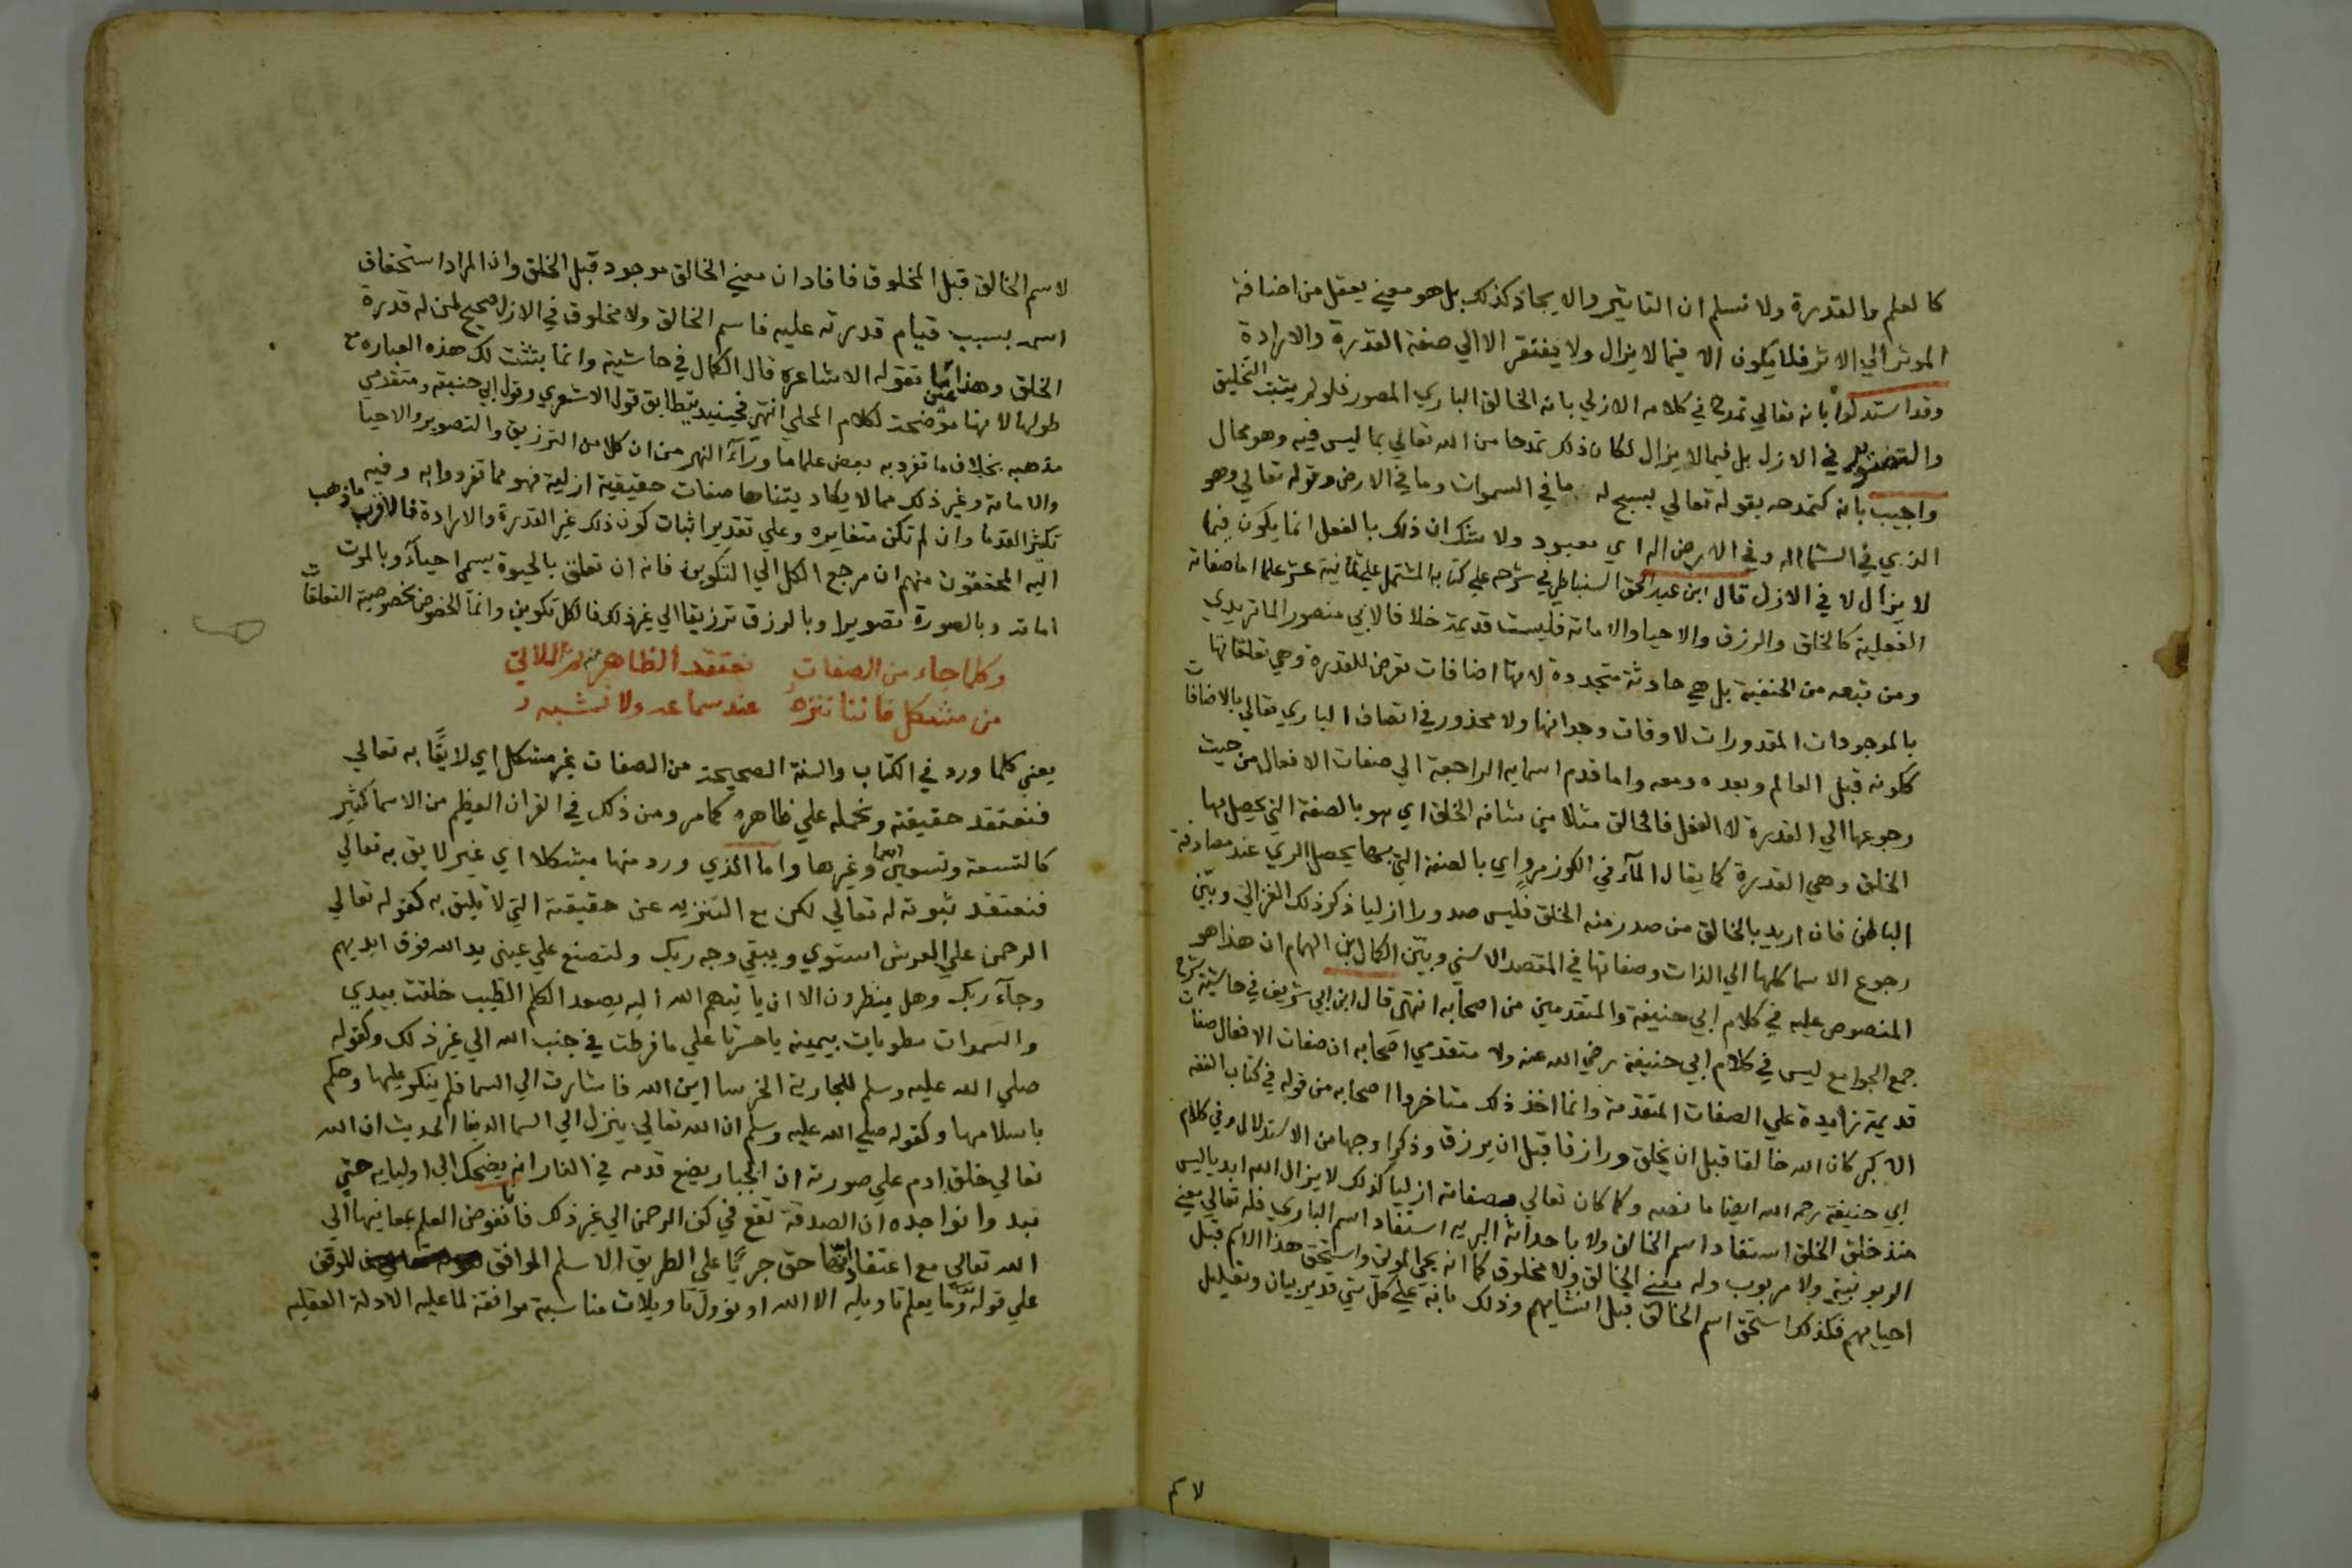 كالعلم والقدرة ولا نسلم ان التاثير والايجاد كذلك بل هو معني يعقل من اضافة
الموثر الي الاثر فلا يكون الا فيما لا يزال ولا يفتقر الا الي صفة القدرة والارادة
وقد استدلوا بانه تعالي تمدح في كلامه الازلي بانه الخالق الباري المصور فلو لم يثبت التخليق
والتصوير في الازل بل فيما لا يزال لكان ذلك تمدحا من الله تعالي بما ليس فيه وهو محال
واجيب بانه كتمدحه بقوله تعالي يسبح له ما في السموات وما في الارض وقوله تعالي وهو
الذي في السماء اله وفي الارض اله اي معبود ولا شك ان ذلك بالفعل انما يكون فيما
لا يزال لا في الازل قال ابن عبد الحق السنباطي في شرحه علي كتابه المشتمل علي ثمانية عشر علما اما صفاته
الفعلية كالخلق والرزق والاحيا والاماتة فليست قديمة خلافا لابي منصور الماتريدي
ومن تبعه من الحنفية بل هي حادثة متجددة لانها اضافات تعرض للقدرة وهي تعلقاتها
بالموجودات المقدورات لاوقات وجدانها ولا محذور في اتصاف الباري تعالي بالاضافات
ككونه قبل العالم وبعده ومعه واما قدم اسمايه الراجعة الي صفات الافعال من حيث
رجوعها الي القدرة لا الفعل فالخالق مثلا من شانه الخلق اي هو بالصفة التي يحصل بها
الخلق وهي القدرة كما يقال المآء في الكوز مرو اي بالصفة التي بها يحصل الري عند مصادفة
الباطن فان اريد بالخالق من صدر منه الخلق فليس صدورا ازليا ذكر ذلك الغزالي وبيّن
رجوع الاسما كلها الي الذات وصفاتها في المقصد الاسني وبيّن الكمال ابن الهمام ان هذا هو
المنصوص عليه في كلام ابي حنيفة والمتقدمين من اصحابه انتهي قال ابن ابي شريف في حاشية شرح
جمع الجوامع ليس في كلام ابي حنيفة رضي الله عنه ولا متقدمي اصحابه ان صفات الافعال صفات
قديمة زايدة علي الصفات المتقدمة وانما اخذ ذلك متاخروا اصحابه من قوله في كتاب الفقه
الاكبر كان الله خالقا قبل ان يخلق ورازقا قبل ان يرزق وذكر اوجها من الاستدلال وفي كلام
ابي حنيفة رحمه الله ايضا ما نصه وكما كان تعالي بصفاته ازليا كذلك لا يزال الله ابديا ليس
منذ خلق الخلق استفاد اسم الخالق ولا باحداثه البرية استفاد اسم الباري فله تعالي معني
الربوبية ولا مربوب وله معني الخالق ولا مخلوق كما انه يحي الموتي واستحق هذا الاسم قبل
احيايهم فكذلك استحق اسم الخالق قبل انشايهم وذلك بانه علي كل شي قدير بيان وتعليل
لاسم
لاسم الخالق قبل المخلوق فافاد ان معني الخالق موجود قبل الخلق وان المراد استحقاق
اسمه بسبب قيام قدرته عليه فاسم الخالق ولا مخلوق في الازل صحيح لمن له قدرة
الخلق وهذا ما تقوله الاشاعرة قال الكمال في حاشيته وانما بثثت لك هذه العباره مع
طولها لانها موضحة لكلام المحلي انتهي فحينيذ يتطابق قول الاشعري وقول ابي حنيفة ومتقدمي
مذهبه بخلاف ما تفرد به بعض علما ما ورآء النهر من ان كلا من الترزيق والتصوير والاحيا
والاماتة وغير ذلك مما لا يكاد يتناها صفات حقيقية ازلية فهو مما تفردوا به وفيه
تكثير القدما وان لم تكن متغايره وعلي تقدير اثبات كون ذلك غير القدرة والارادة فالاقرب ما ذهب
اليه المحققون منهم ان مرجع الكل الي التكوين فانه ان تعلق بالحيوة يسمي احيآء وبالموت
اماتة وبالصورة تصويرا وبالرزق ترزيقا الي غير ذلك فالكل تكوين وانما الخصوص بخصوصية التعلقات
وكلما جاء من الصفات نعتقد الظاهر
من مشكل فاننا ننزه عند سماعه ولا نشبه
يعني كلما ورد في الكتاب والسنة الصحيحة من الصفات غير مشكل اي لايقًا به تعالي
فنعتقد حقيقته ونحمله علي ظاهره كما مر ومن ذلك في القران العظيم من الاسما كثير
كالتسعة وتسعين اسما وغيرها واما الذي ورد منها مشكلا اي غير لايق به تعالي
فنعتقد ثبوته له تعالي لكن مع التنزيه عن حقيقته التي لا تليق به كقوله تعالي
الرحمن علي العرش استوي ويبقي وجه ربك ولتصنع علي عيني يد الله فوق ايديهم
وجآء ربك وهل ينظرون الا ان ياتيهم الله اليه يصعد الكلم الطيب خلقت بيدي
والسموات مطويات بيمينه ياحسرتا علي ما فرطت في جنب الله الي غير ذلك وكقوله
صلي الله عليه وسلم للجارية الخرسا اين الله فاشارت الي السما فلم ينكر عليها وحكم
باسلامها وكقوله صلي الله عليه وسلم ان الله تعالي ينزل الي السما الدنيا الحديث ان الله
تعالي خلق ادم علي صورته ان الجبار يضع قدمه في النار انه يضحك الي اوليايه حتي
تبدوا نواجده ان الصدقة تقع في كف الرحمن الي غير ذلك فانا نفوض العلم بمعانيها الي
الله تعالي مع اعتقاد انها حق جريًا علي الطريق الاسلم الموافق للوقف
علي قوله وما يعلم تاويله الا الله او نؤول تاويلات مناسبة موافقة لما عليه الادلة العقليه